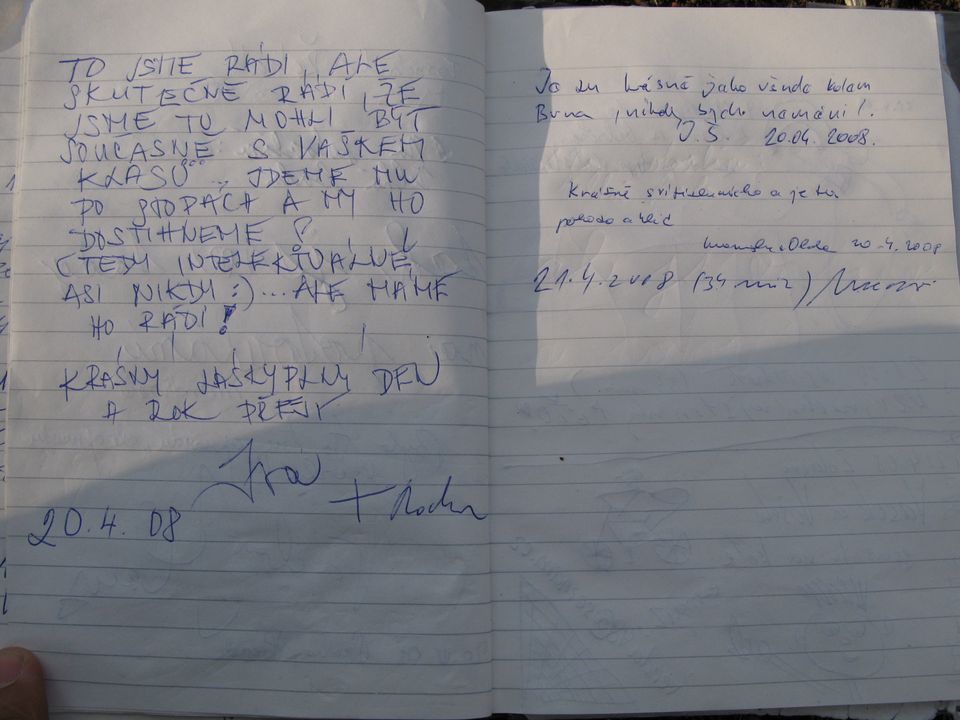 TO JSME RÁDI, ALE
SKUTEČNĚ RÁDI, ŽE
JSME TU MOHLI BÝT
SOUČASNĚ S VAŠKEM
KLASŮ... JDEME MU
PO STOPÁCH A MY HO
DOSTIHNEME!
(TEDY INTELEKTUÁLNĚ
ASI NIKDY :)... ALE MÁME
HO RÁDI!
KRÁSNÝ LÁSKYPLNÝ DEN
A ROK PŘEJÍ
Iva
+ Radka
20.4.08
Je zu krásně jako všude kolem
Brna, nikdy bych neměnil!
J.Š. 20.04.2008.
Krásně svítí sluníčko a je tu
pohoda a klid
Olda 20.4.2008
21.4.2008 (34 min)